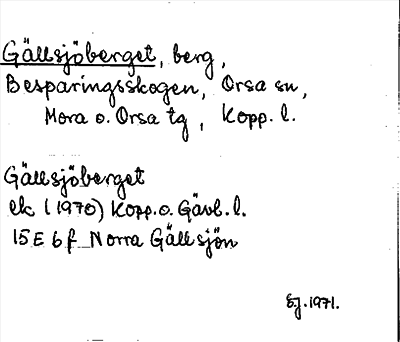 Gällsjöberget, berg,
Besparingsskogen, Orsa sn,
Mora o. Orsa tg, Kopp. l.
Gällsjöberget
ek (1970) Kopp. o. Gävl. l.
15 E 6 f Norra Gällsjön
S.J. 1971.